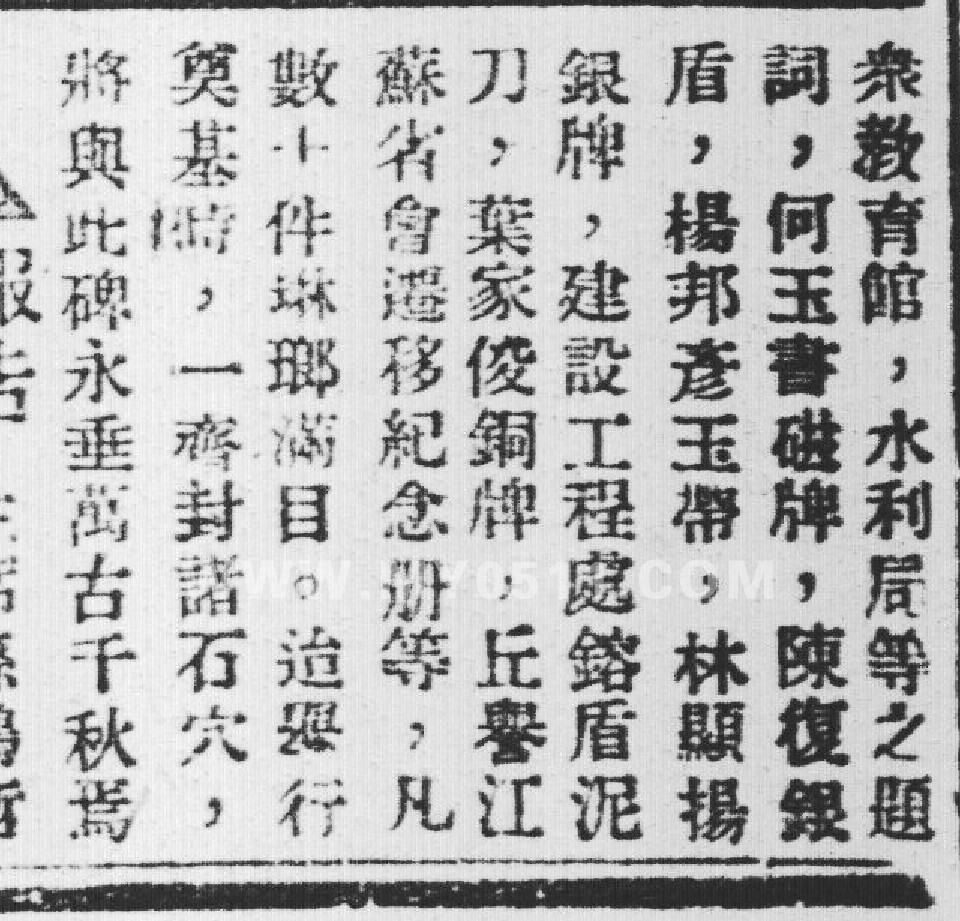 眾教育館，水利局等之題
詞，何玉書磁牌，陳復銀
盾，楊邦彥玉帶，林顯揚
銀牌，建設工程處鎔盾泥
刀，葉家俊銅牌，丘譽江
蘇省會遷移紀念册等，凡
數十件琳瑯滿目。迨舉行
奠基時，一齊封諸石穴，
將與此碑永垂萬古千秋焉
報告